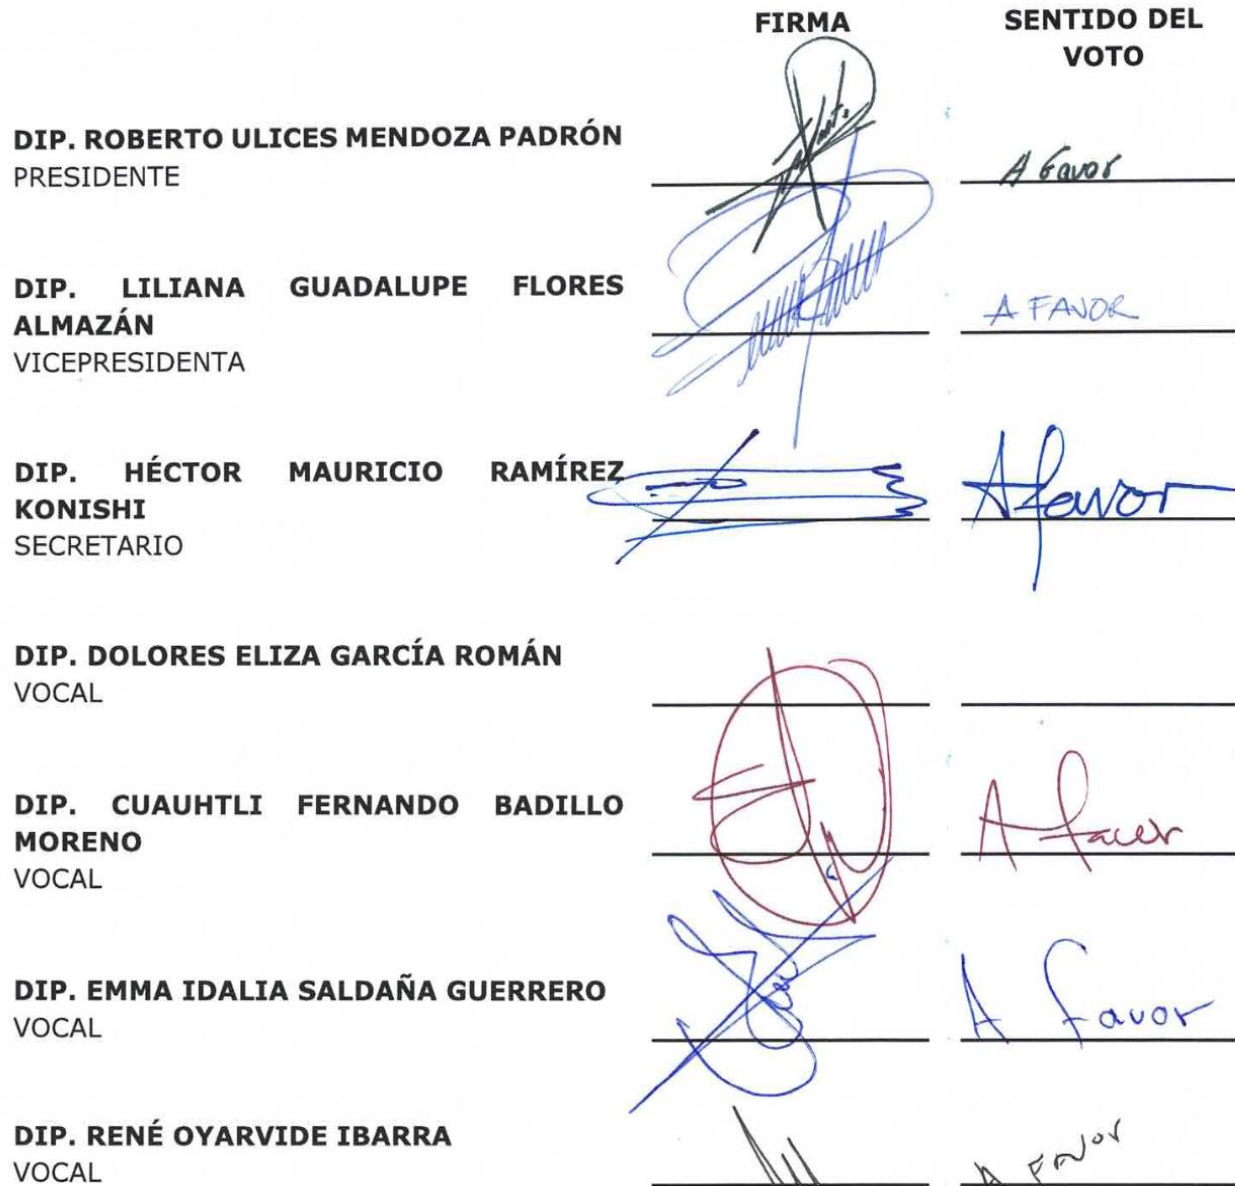 FIRMA SENTIDO DEL
VOTO
DIP. ROBERTO ULICES MENDOZA PADRÓN
PRESIDENTE A favor
DIP. LILIANA GUADALUPE FLORES
ALMAZÁN A FAVOR
VICEPRESIDENTA
DIP. HÉCTOR MAURICIO RAMÍREZ
KONISHI A favor
SECRETARIO
DIP. DOLORES ELIZA GARCÍA ROMÁN
VOCAL
DIP. CUAUHTLI FERNANDO BADILLO
MORENO A favor
VOCAL
DIP. EMMA IDALIA SALDAÑA GUERRERO
VOCAL A favor
DIP. RENÉ OYARVIDE IBARRA
VOCAL A FAVOR